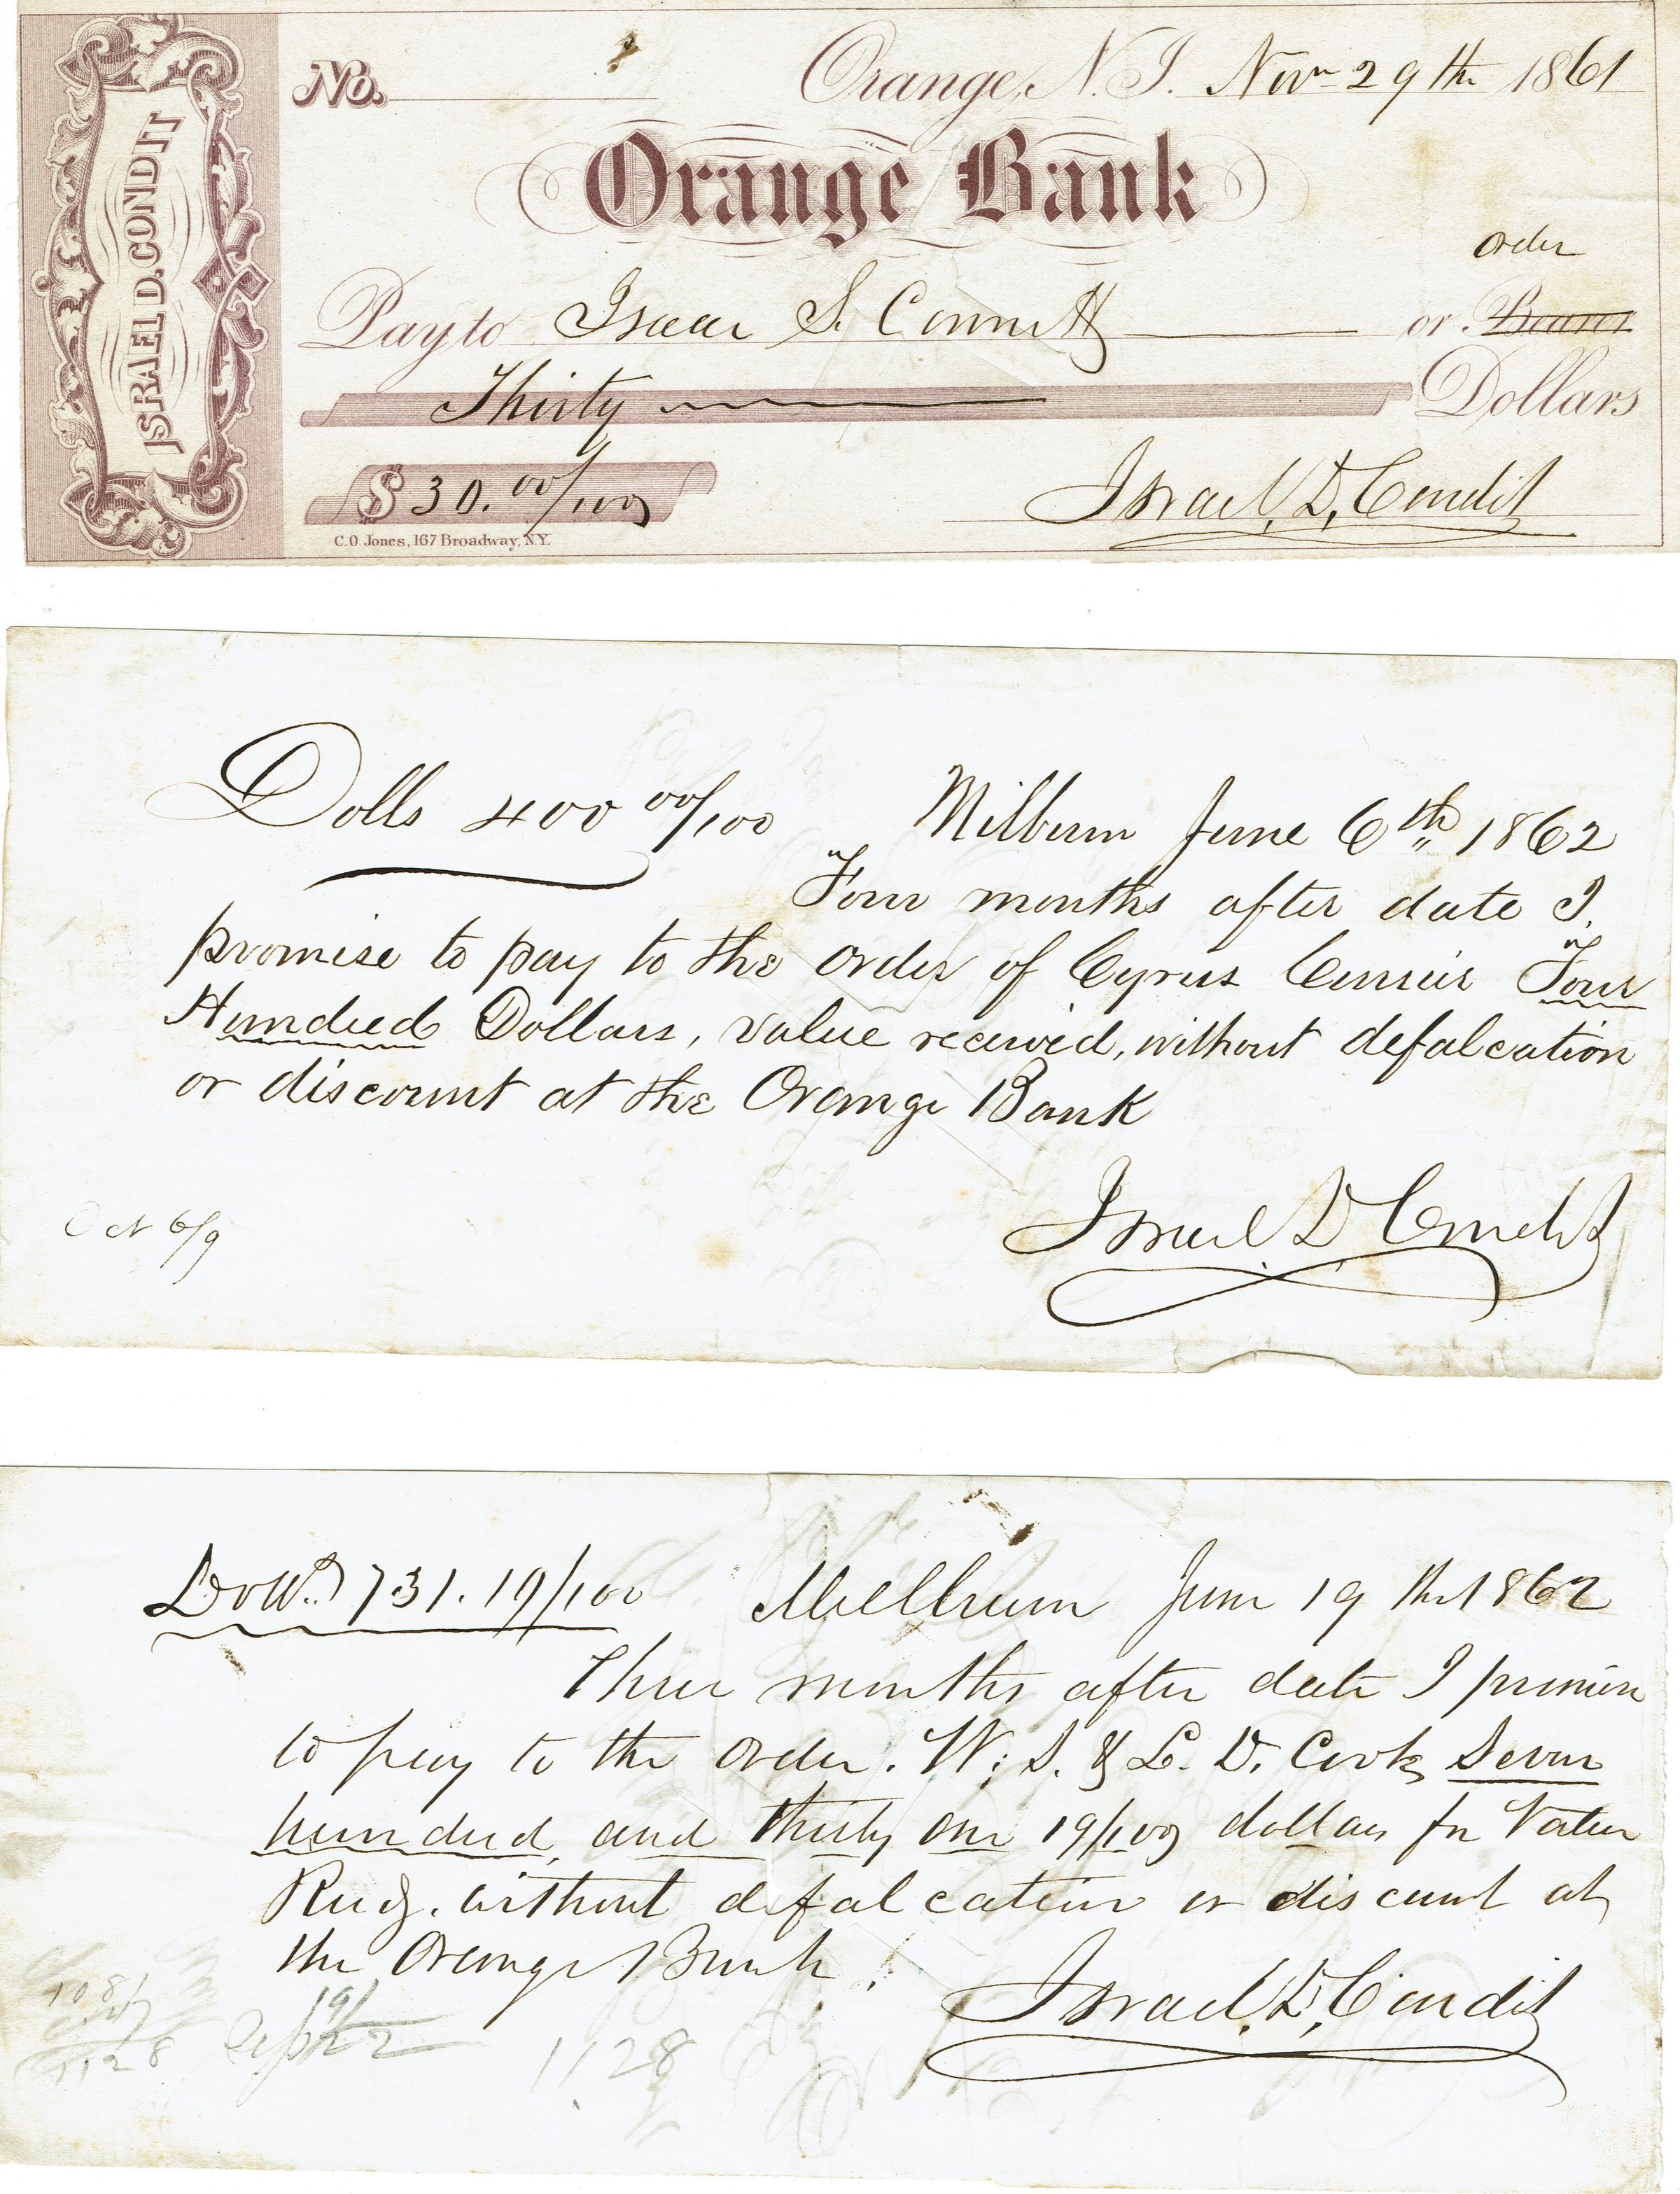 ISRAEL D. CONDIT
No. Orange, N.J. Novr 29th 1861
Orange Bank
order
Pay to Isaac S. Connett or Bearer
Thirty Dollars
$ 30.00/100
Israel, D, Condit
C.O. Jones, 167 Broadway, N.Y.
Dolls 400 00/100 Milburn June 6th 1862
Four months after date I
promise to pay to the order of Cyrus Currier Four
Hundred Dollars, value received, without defalcation
or discount at the Orange Bank
Israel D Condit
Oct 6/9
Dolls. 731.19/100 Millburn June 19th 1862
Three months after date I promise
to pay to the order. W. S. & L. D. Cook Seven
hundred, and thirty one 19/100 dollars for Value
Recd. without defalcation or discount at
the Orange Bank.
Israel, D, Condit
Sep 19/22
1128
1128